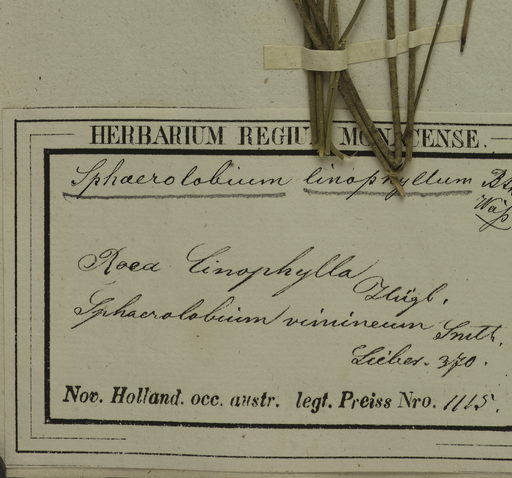 HERBARIUM REGIUM MONACENSE.
Sphaerolobium linophyllum
Roea linophylla Hügl.
Sphaerolobium vimineum Smith.
Lieber. 370.
Nov. Holland. occ. austr. legt. Preiss Nro. 1115.